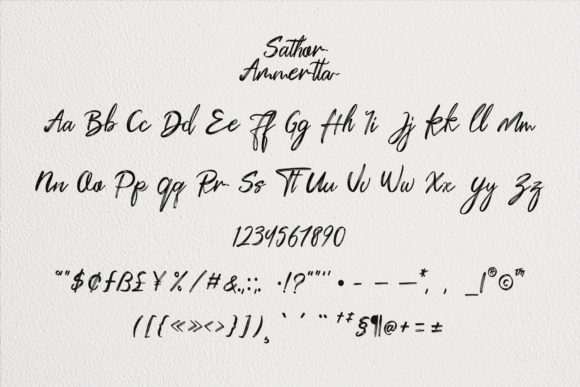 Sathor
Ammertta
Aa Bb Cc Dd Ee Ff Gg Hh Ii Jj Kk Ll Mm
Nn Oo Pp Qq Rr Ss Tt Uu Vv Ww Xx Yy Zz
1234567890
~""$¢ƒß£¥%/#&.,:;. ·!?""''•-–—*, , _|®©™
([{«»<>}])¸`´¨†‡§¶@+=±